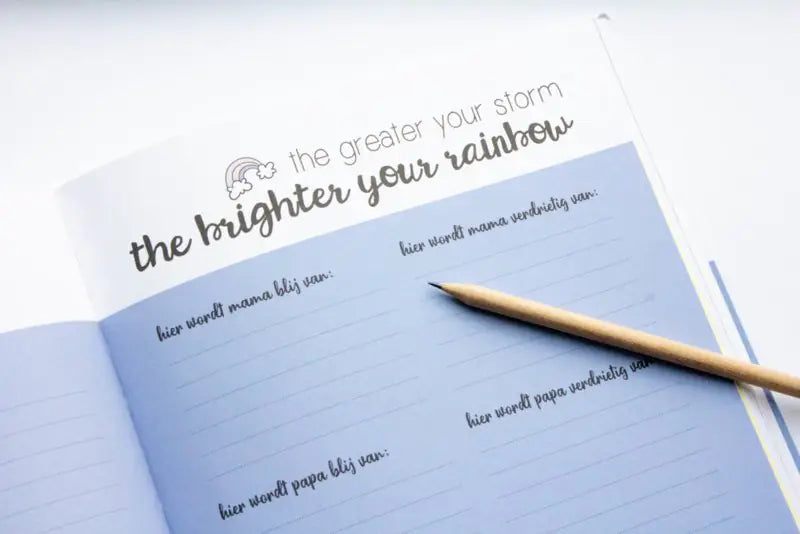 the greater your storm
the brighter your rainbow
hier wordt mama blij van:
hier wordt mama verdrietig van:
hier wordt papa blij van:
hier wordt papa verdrietig van